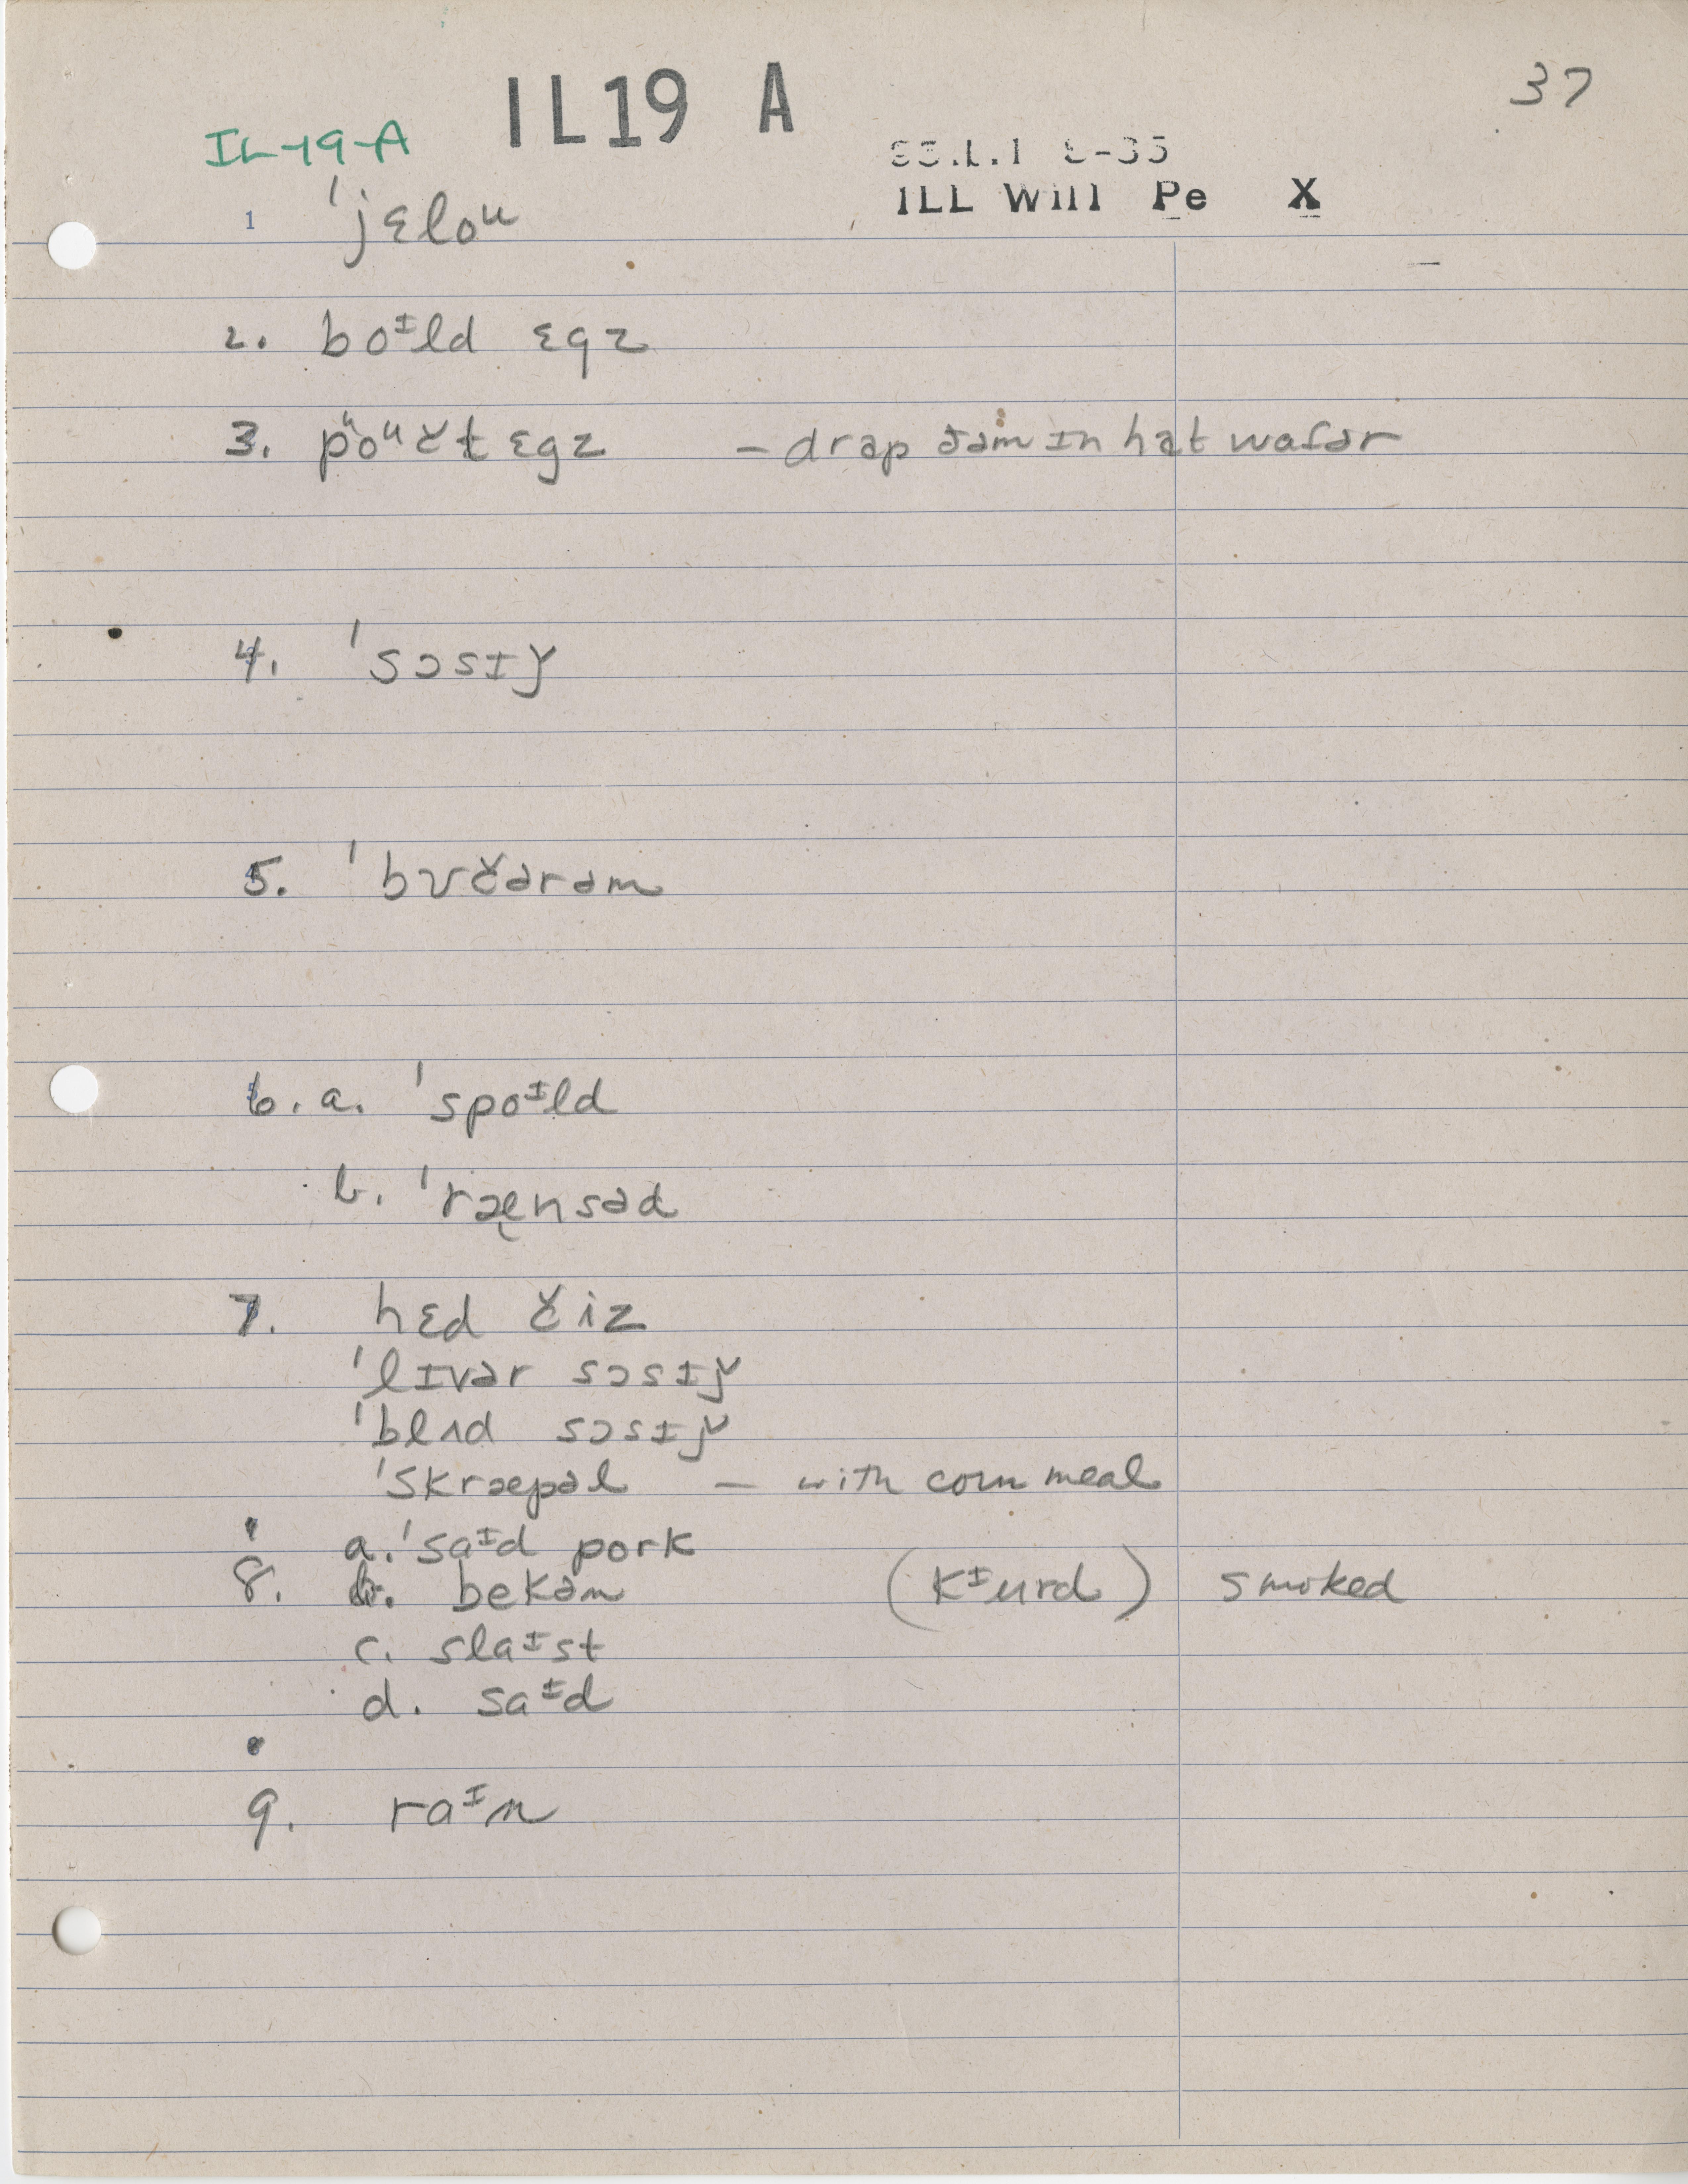 37
IL19 A
IL-19-A
ILL Will Pe X
1 ˈjɛloᵘ
2. boᶦld ɛgz
3. poᵘčt ɛgz – drap ðəm ɪn hat watər
4. ˈsɔsɪǰ
5. ˈbʊčərəm
6. a. ˈspoᶦld
b. ˈrænsəd
7. hɛd čiz
ˈlɪvər sɔsɪǰ
ˈblʌd sɔsɪǰ
ˈskræpəl – with corn meal
a. ˈsaᶦd pork
8. b. bekən (kᶦurd) smoked
c. slaᶦst
d. saᶦd
9. raᶦn